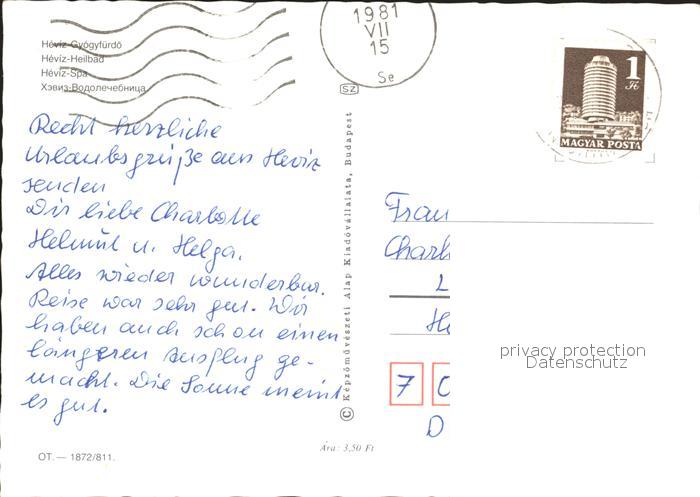 Hévíz-Gyógyfürdő
Hévíz-Heilbad
Héviz-Spa
Хэвиз-Водолечебница
1981
VII
15
Se
SZ
1
Ft
MAGYAR POSTA
Recht herzliche
Urlaubsgrüße aus Heviz
senden
Dir liebe Charlotte
Helmut u. Helga.
Alles wieder wunderbar.
Reise war sehr gut. Wir
haben auch schon einen
längeren Ausflug ge-
macht. Die Sonne meint
es gut.
© Képzőművészeti Alap Kiadóvállalata, Budapest
Frau
Charl
L
He
7
D
privacy protection
Datenschutz
Ára: 3,50 Ft
OT. — 1872/811.